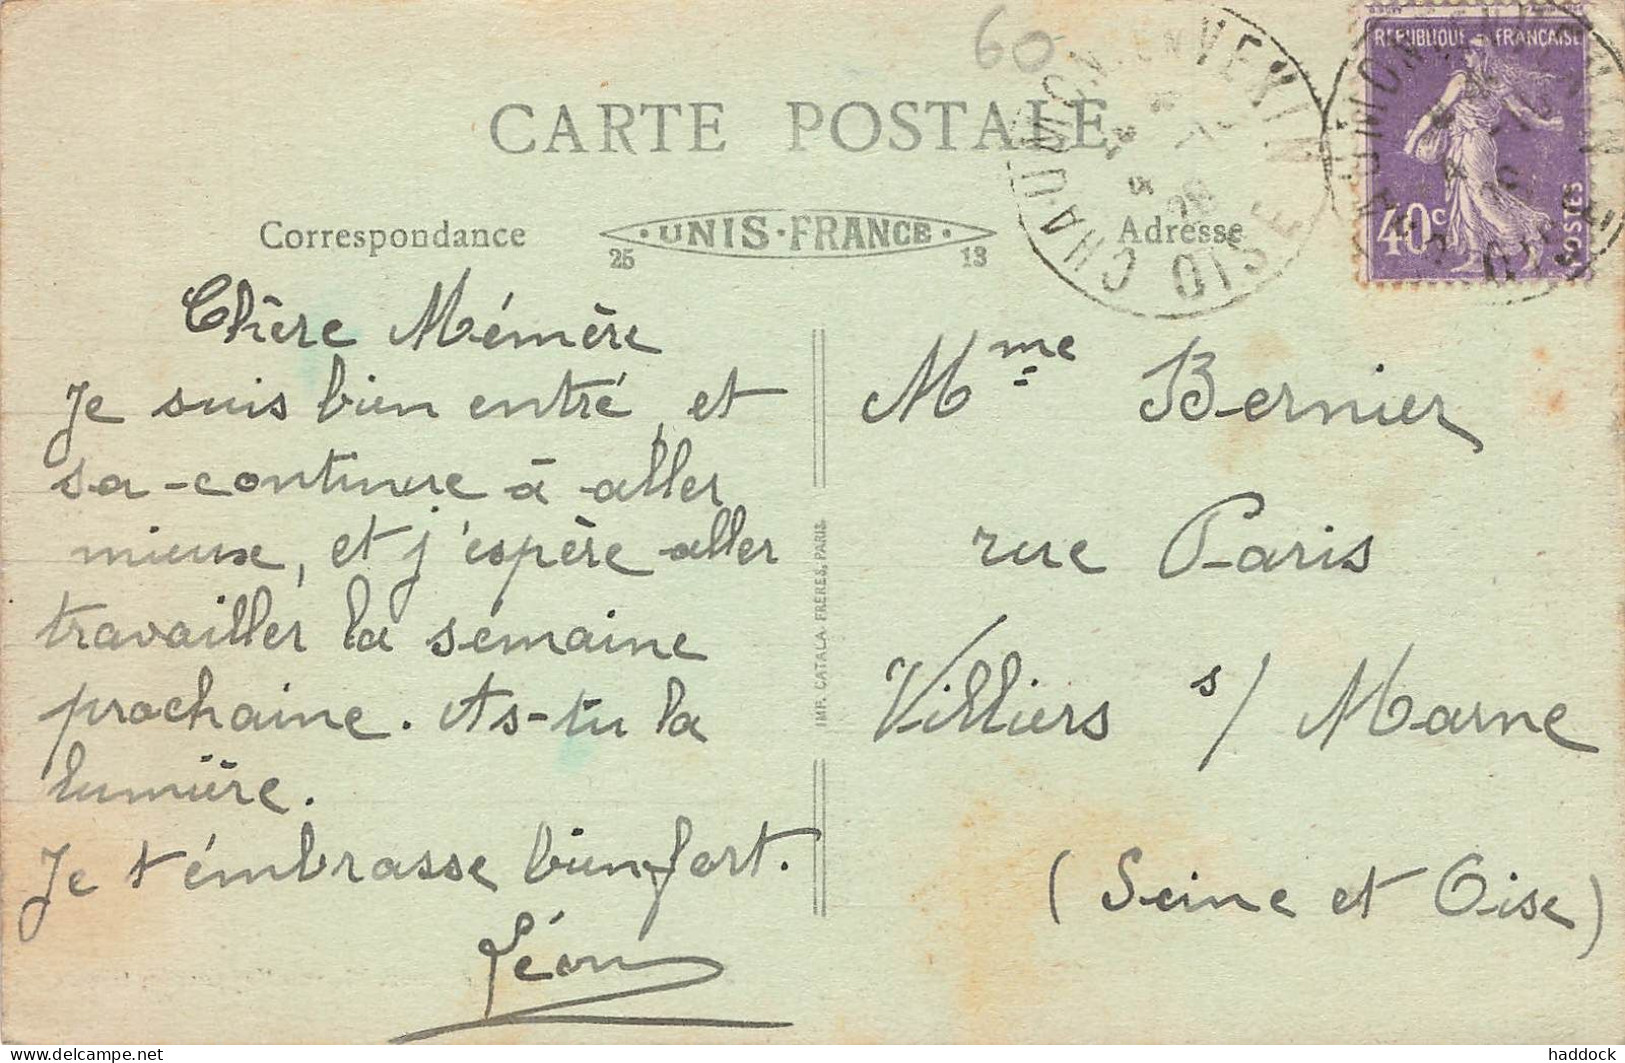 60
CARTE POSTALE
REPUBLIQUE FRANÇAISE
40c
POSTES
CHAUMONT EN VEXIN
OISE
Correspondance
UNIS-FRANCE
25 13
Adresse
Chère Mémère
Je suis bien entré, et
sa-continue à aller
mieux, et j'espère aller
travailler la semaine
prochaine. As-tu la
lumière.
Je t'émbrasse bien fort.
Léon
IMP. CATALA FRERES, PARIS
Mme Bernier
rue Paris
Villiers s/ Marne
(Seine et Oise)
delcampe.net
haddock